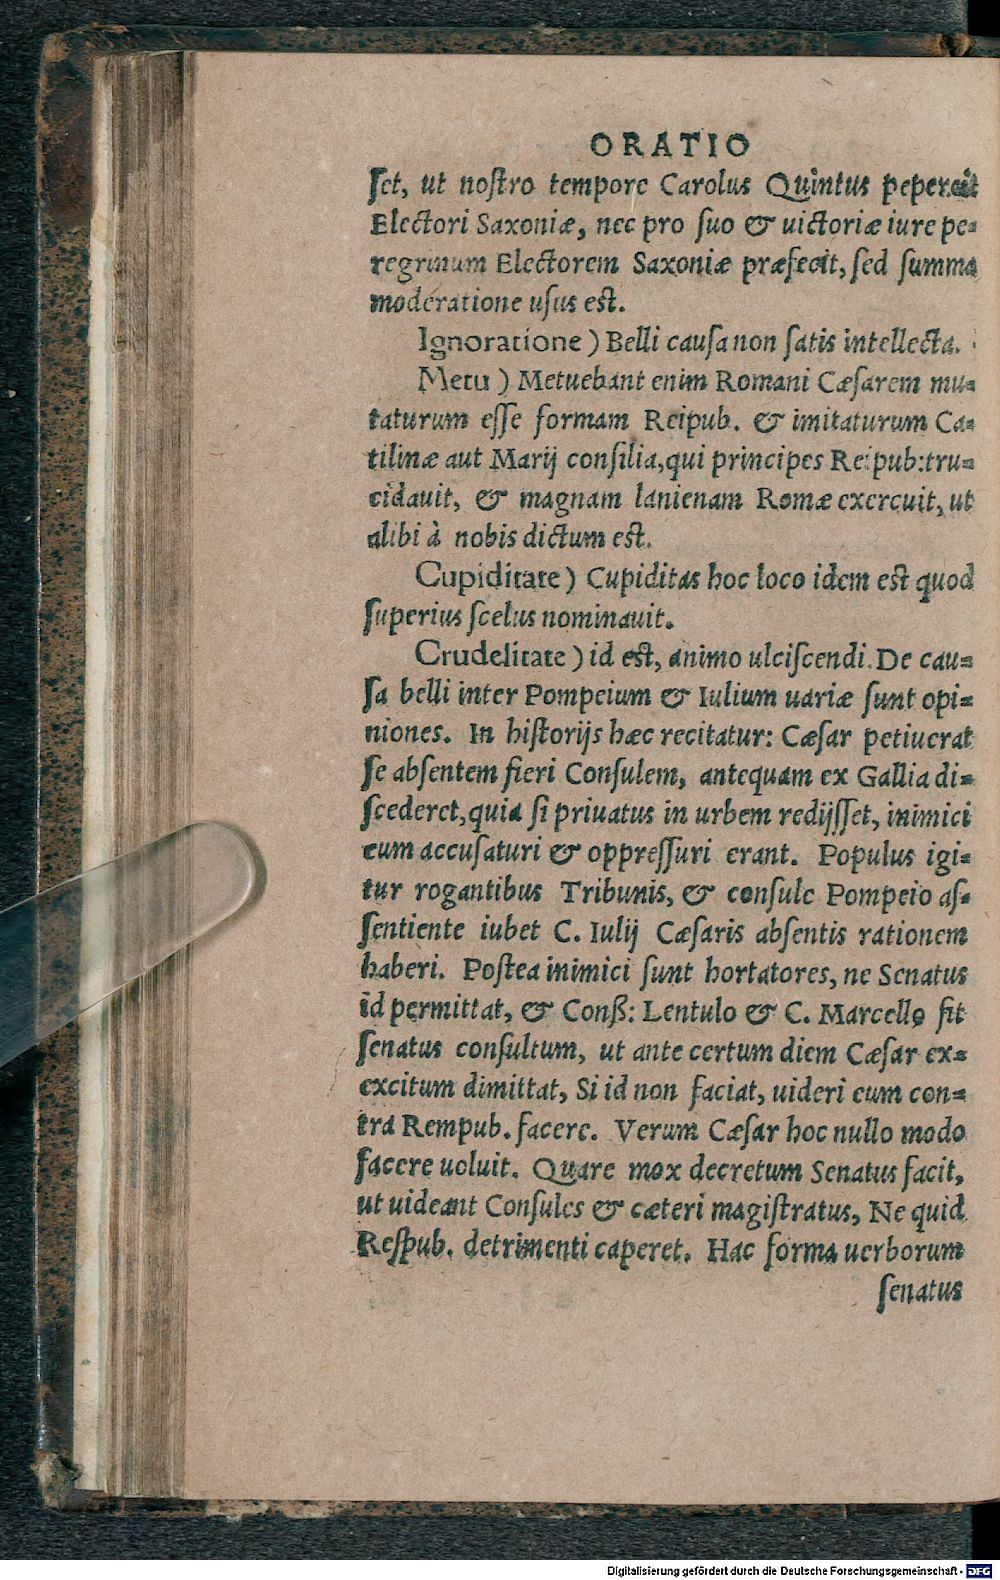 ORATIO
ſet, ut noſtro tempore Carolus Quintus pepercit
Electori Saxoniæ, nec pro ſuo & uictoriæ iure pe-
regrinum Electorem Saxoniæ præfecit, ſed ſumma
moderatione uſus eſt.
Ignoratione ) Belli cauſa non ſatis intellecta.
Metu ) Metuebant enim Romani Cæſarem mu-
taturum eſſe formam Reipub. & imitaturum Ca-
tilinæ aut Marij conſilia, qui principes Reipub: tru-
cidauit, & magnam lanienam Romæ exercuit, ut
alibi à nobis dictum eſt.
Cupiditate ) Cupiditas hoc loco idem eſt quod
ſuperius ſcelus nominauit.
Crudelitate ) id eſt, animo ulciſcendi. De cau-
ſa belli inter Pompeium & Iulium uariæ ſunt opi-
niones. In hiſtorijs hæc recitatur: Cæſar petiuerat
ſe abſentem fieri Conſulem, antequam ex Gallia di-
ſcederet, quia ſi priuatus in urbem redijſſet, inimici
eum accuſaturi & oppreſſuri erant. Populus igi-
tur rogantibus Tribunis, & conſule Pompeio aſ-
ſentiente iubet C. Iulij Cæſaris abſentis rationem
haberi. Poſtea inimici ſunt hortatores, ne Senatus
id permittat, & Conſß: Lentulo & C. Marcello fit
ſenatus conſultum, ut ante certum diem Cæſar ex-
excitum dimittat, Si id non faciat, uideri eum con-
tra Rempub. facere. Verum Cæſar hoc nullo modo
facere uoluit. Quare mox decretum Senatus facit,
ut uideant Conſules & cæteri magiſtratus, Ne quid
Reſpub. detrimenti caperet. Hac forma uerborum
ſenatus
Digitalisierung gefördert durch die Deutsche Forschungsgemeinschaft - DFG